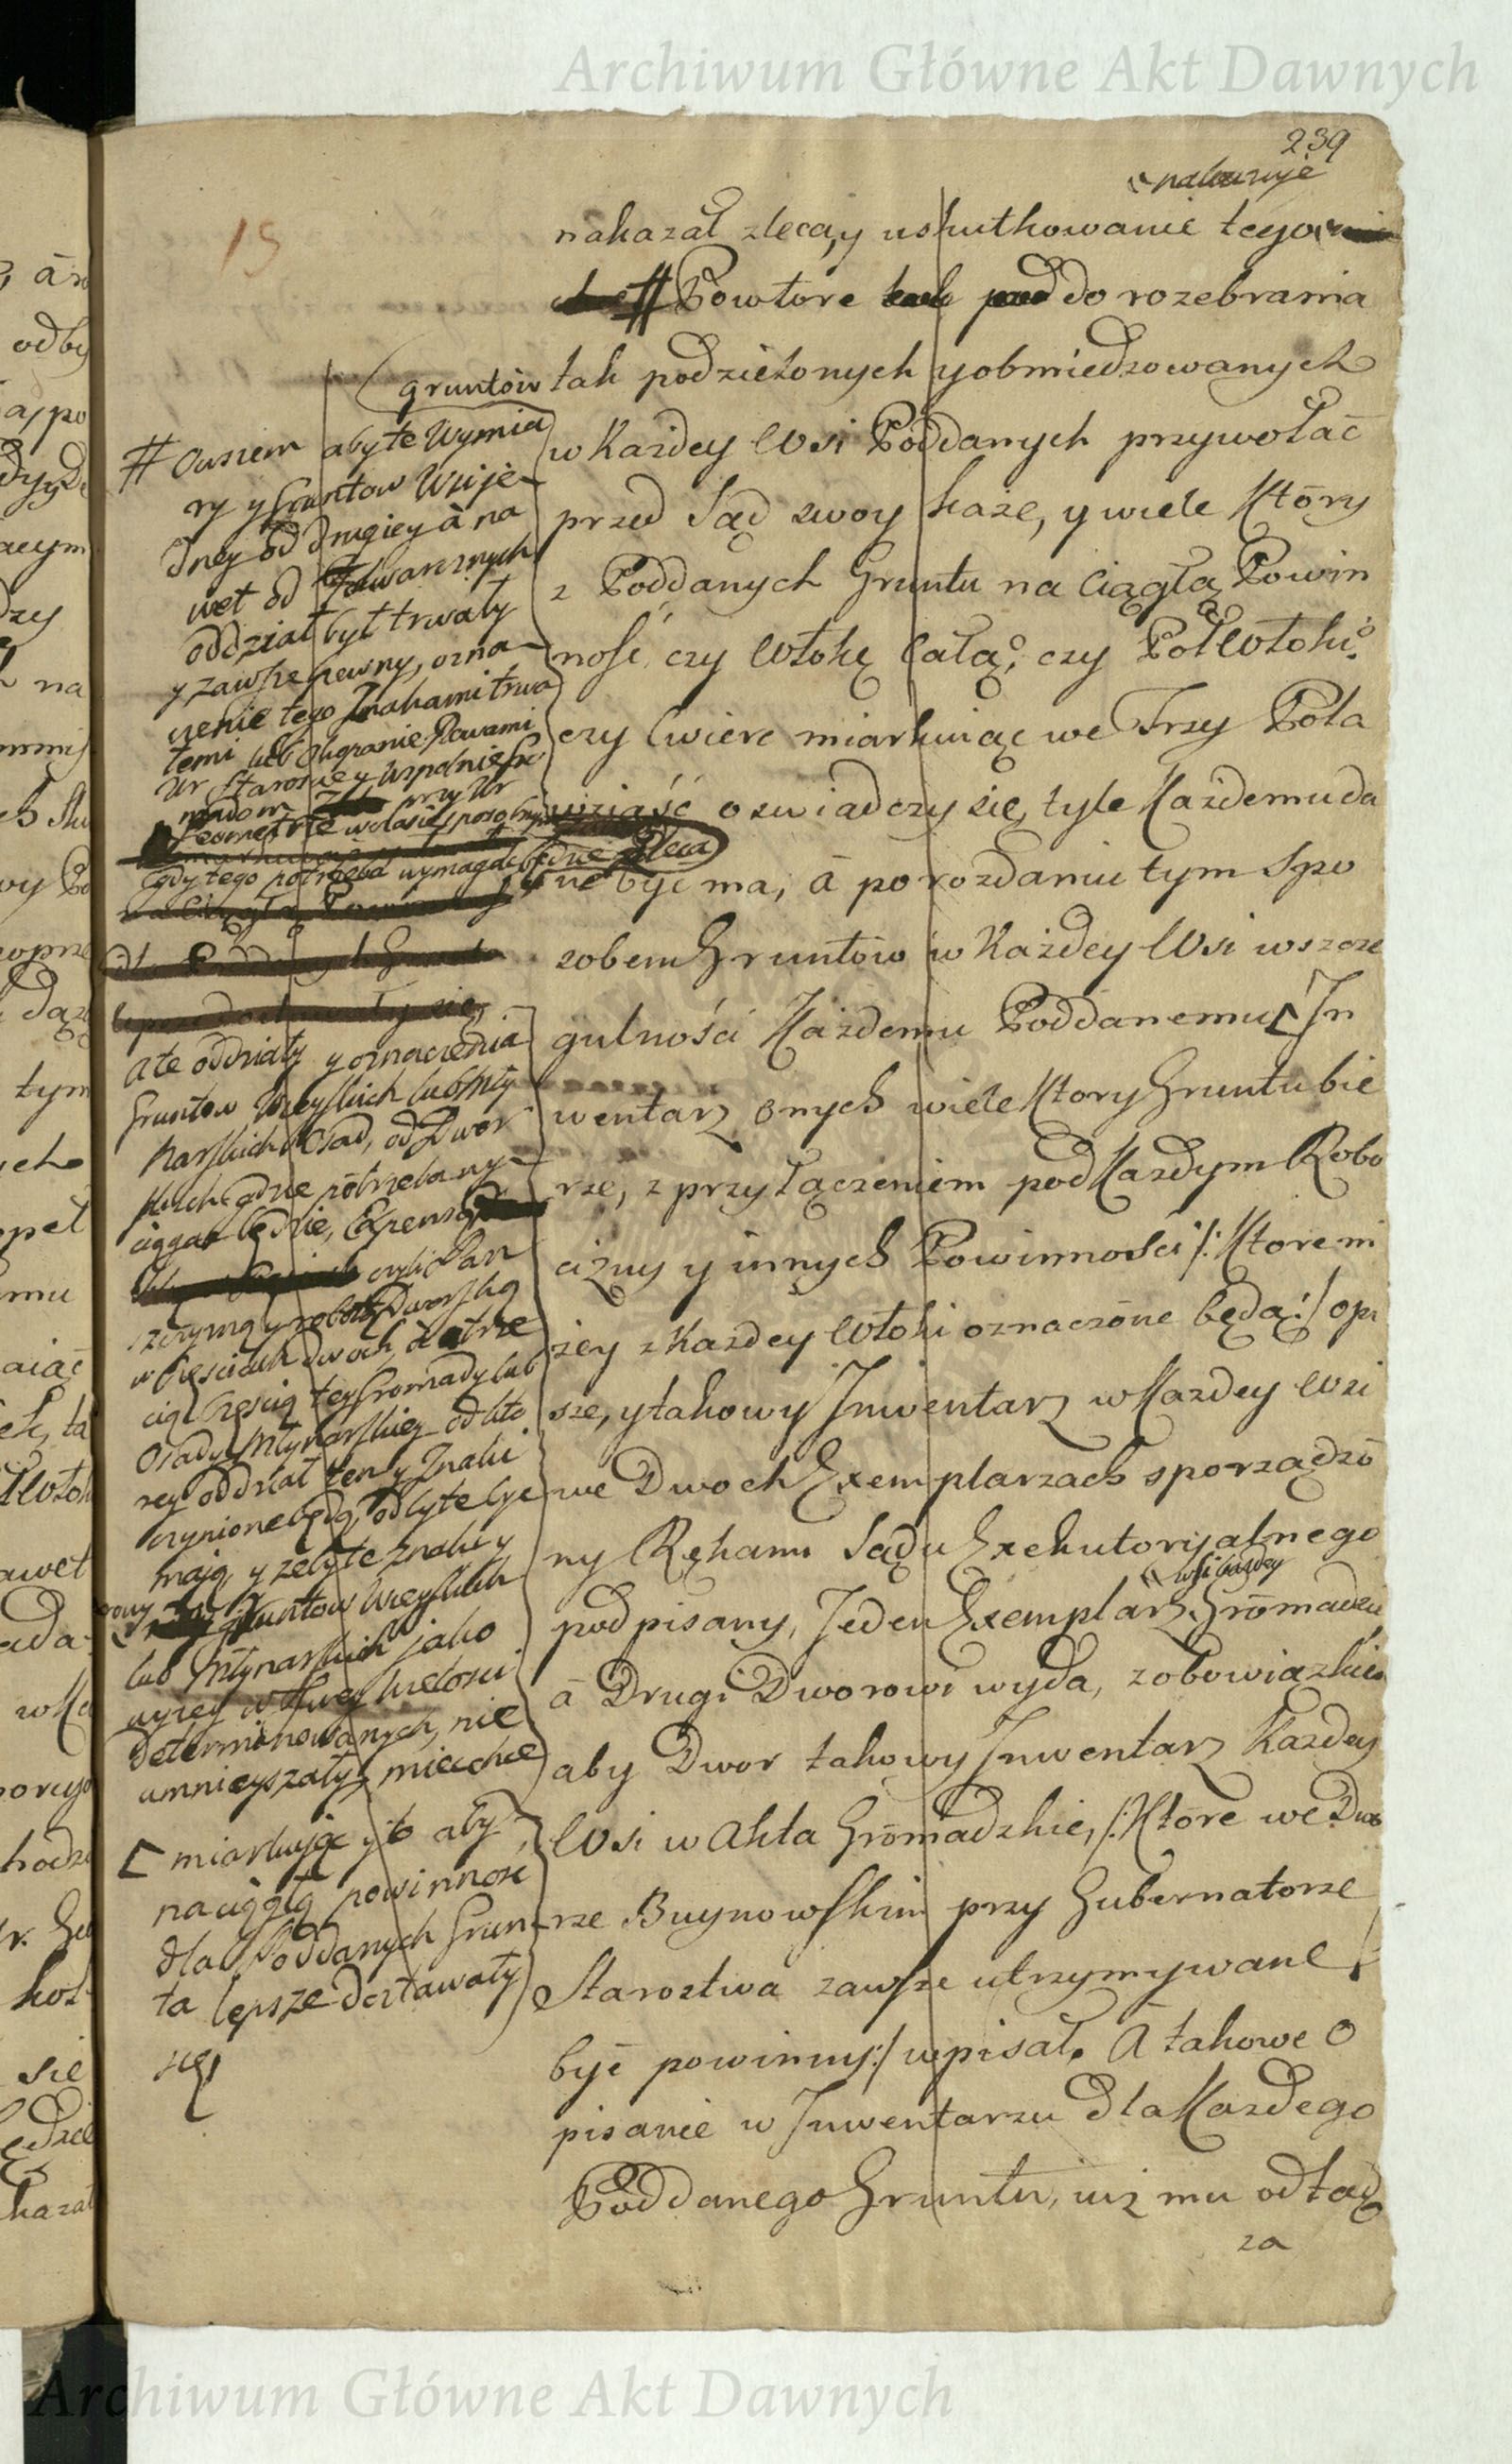 Archiwum Główne Akt Dawnych
239
15
nakazuje
nakazał zleca, y uskutkowanie tego
# Powtore do rozebrania
gruntów tak podzielonych y obmiedzowanych
w Każdey Wsi Poddanych przywołać
przed Sąd swoy każe, y wiele Który
z Poddanych Gruntu na Ciągłą Powin
ność, czy Włokę Całą, czy Pół Włoki,
czy Cwierć miarkuiąc we Trzy Pola
wziąść oswiadczy się, tyle Każdemu da
ne być ma, à po rozdaniu tym Spo
sobem Gruntów w Każdey Wsi w szcze
gulności Każdemu Poddanemu [ In
wentarz onych wiele Ktory Gruntu bie
rze, z przyłączeniem pod Każdym Robo
cizny y innych Powinności /: Ktore ni
żey z Każdey Włoki oznaczone będą :/ opi
sze, y takowy Inwentarz w Każdey Wsi
we Dwoch Exemplarzach sporządzo
ny Rękami Sądu Exekutoryalnego
wsi każdey
podpisany, Jeden Exemplarz Gromadzie
à Drugi Dworowi wyda, z obowiązkiem
aby Dwor takowy Inwentarz Każdey
Wsi w Akta Gromadzkie, /: Ktore we Dwo
rze Buynowskim przy Gubernatorze
Starostwa zawsze utrzymywane
być powinny :/ wpisał. A takowe O
pisanie w Inwentarzu dla Każdego
Poddanego Gruntu, iuż mu odtąd
za
# Owszem aby te Wymia
ry y Gruntow Wsi je
dney od drugiey à na
wet od Folwarcznych
oddział był trwały
y zawsze pewny, ozna
czenie tego Znakami trwa
łemi lub Ugranie Rowami
Ur Staroscie y wspolnie Gro
madom przy Ur
Geometrze w czasie sposobnym
gdy tego potrzeba wymagać będzie zleca
Ate oddziały y oznaczenia
Gruntow Wieyskich lub Mły
narskich Osad, od Dwor
skich gdzie potrzeba wy
ciągać będzie, Expensą
czyli Pań
szczyzną y robotą Dworską
w Częściach dwoch, à trze
cią Częścią tey Gromady lub
Osady Młynarskiey od kto
rey oddział ten y Znaki
czynione będą, odbyte być
mają, y żeby te znaki y
rowy Gruntow Wieyskich
lub Młynarskich jako
wyżey w swey wielości
determinowanych, nie
umnieyszały, mieć chce
[ miarkując y to aby
na ciągłą powinność
dla Poddanych Grun
ta lepsze dostawały
się
Archiwum Główne Akt Dawnych